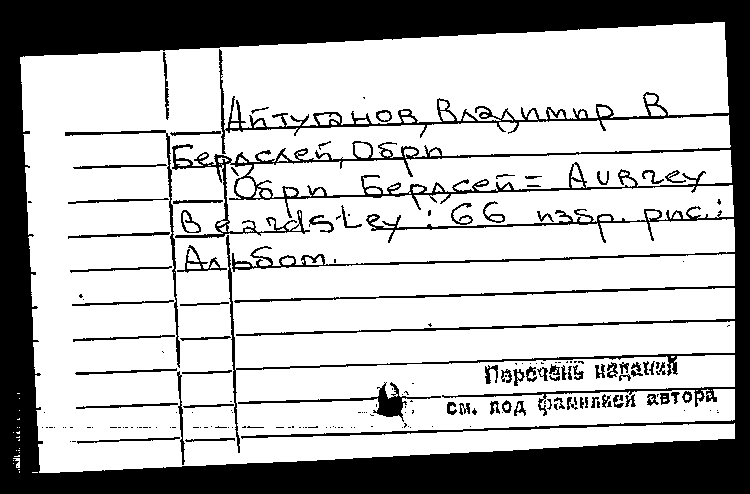 Айтуганов, Владимир В
Бердслей, Обри
Обри Бердсей = Aubrey
Beardsley : 66 избр. рис.:
Альбом.
Перечень изданий
см. под фамилией автора